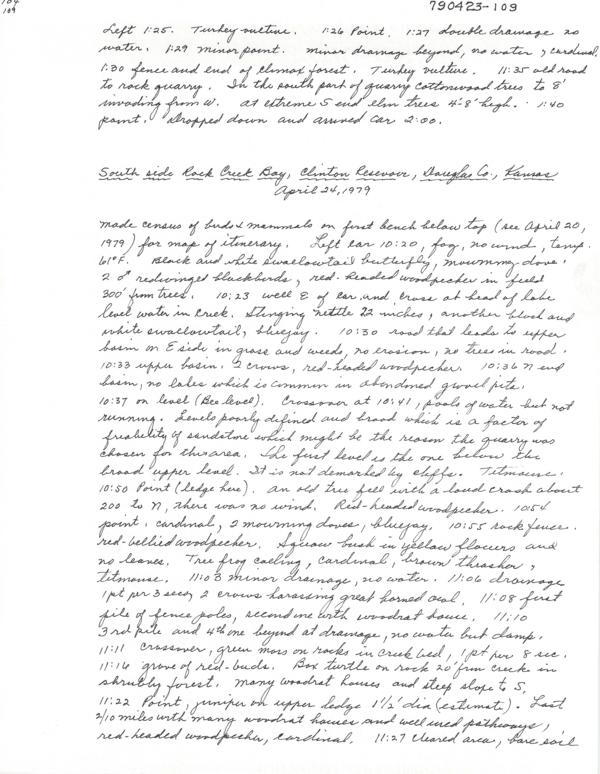 104
109
790423-109
Left 1:25. Turkey vulture. 1:26 Point. 1:27 double drainage no
water. 1:29 minor point. minor drainage beyond, no water, cardinal.
1:30 fence and end of climax forest. Turkey vulture. 11:35 old road
to rock quarry. In the south part of quarry cottonwood trees to 8'
invading from W. at extreme S end elm trees 4-8' high. 1:40
point. Dropped down and arrived car 2:00.
South side Rock Creek Bay, Clinton Resevoir, Douglas Co., Kansas
April 24, 1979
made census of birds & mammals on first bench below top (see April 20,
1979) for map of itinerary. Left car 10:20, fog, no wind, temp.
61°F. Black and white swallowtail butterfly, mourning dove.
2 ♂ redwinged blackbirds, red-headed woodpecker in field
300' from trees. 10:23 well E of car and cross at head of lake
level water in creek. Stinging nettle 22 inches, another black and
white swallowtail, bluejay. 10:30 road that leads to upper
basin on E side in grass and weeds, no erosion, no trees in road.
10:33 upper basin. 2 crows, red-headed woodpecker. 10:36 N end
basin, no lakes which is common in abandoned gravel pits.
10:37 on level (Bee level). Crossover at 10:41, pools of water but not
running. Levels poorly defined and broad which is a factor of
friability of sandstone which might be the reason the quarry was
chosen for this area. The first level is the one below the
broad upper level. It is not demarked by cliffs. Titmouse.
10:50 Point (ledge here). An old tree fell with a loud crash about
200 to N, there was no wind. Red-headed woodpecker. 1054
point. cardinal, 2 mourning doves, bluejay. 10:55 rock fence.
red-bellied woodpecker. Squaw bush in yellow flowers and
no leaves. Tree frog calling, cardinal, brown thrasher,
titmouse. 11:03 minor drainage, no water. 11:06 drainage
1 pt per 3 secs, 2 crows harassing great horned owl. 11:08 first
pile of fence poles, second one with woodrat house. 11:10
3rd pile and 4th one beyond at drainage, no water but damp.
11:11 crossover, green moss on rocks in creek bed, 1 pt per 8 sec.
11:16 grove of red-buds. Box turtle on rock 20' from creek in
shrubby forest. Many woodrat houses and steep slope to S.
11:22 Point, juniper on upper ledge 1½' dia (estimate). Last
2/10 miles with many woodrat houses and well used pathways,
red-headed woodpecker, cardinal. 11:27 cleared area, bare soil